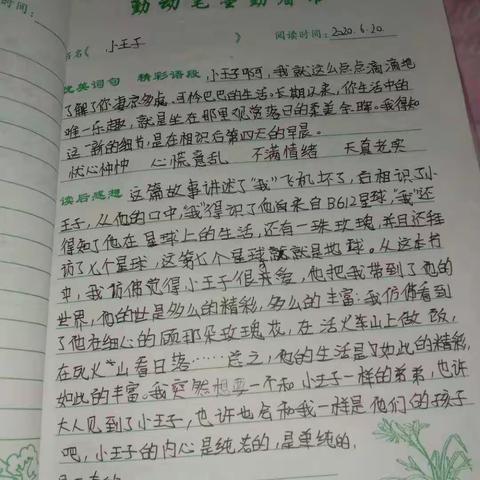 勤动笔墨勤
书名《 小王子 》 阅读时间：2020.6.20.
优美词句 精彩语段 小王子啊，我就这么点点滴滴地
了解了你凄凉多虑、可怜巴巴的生活。长期以来，你生活中的
唯一乐趣，就是坐在那里观赏落日的柔美余晖。我得知
这一新的细节，是在相识后第四天的早晨。
忧心忡忡 心慌意乱 不满情绪 天真老实
读后感想 这篇故事讲述了“我”飞机坏了，后相识了小
王子，从他的口中，“我”得识了他原来自B612星球，“我”还
得知了他在星球上的生活，还有一珠玫瑰，并且还拜
访了七个星球，这第七个星球就是地球。从这本书
中，我仿佛觉得小王子很可爱，他把我带到了他的
世界，他的世是多么的精彩，多么的丰富：我仿佛看到
了他在细心的顾那朵玫瑰花，在活火车山上做饭，
在死火山看日落……总之，他的生活是如此的精彩，
如此的丰富。我突然想要一个和小王子一样的弟弟，也许
大人见到了小王子，也许也会和我一样是他们的孩子
吧，小王子的内心是纯洁的，是单纯的，